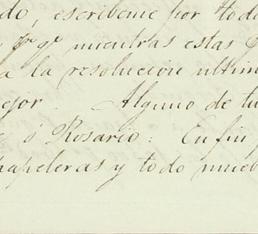 do, escribeme por todo
y pr. qe. mientras estas
a la resolucion ultim
ejor. Alguno de tu
ó Rosario: En fin
hapeleras y todo mueb